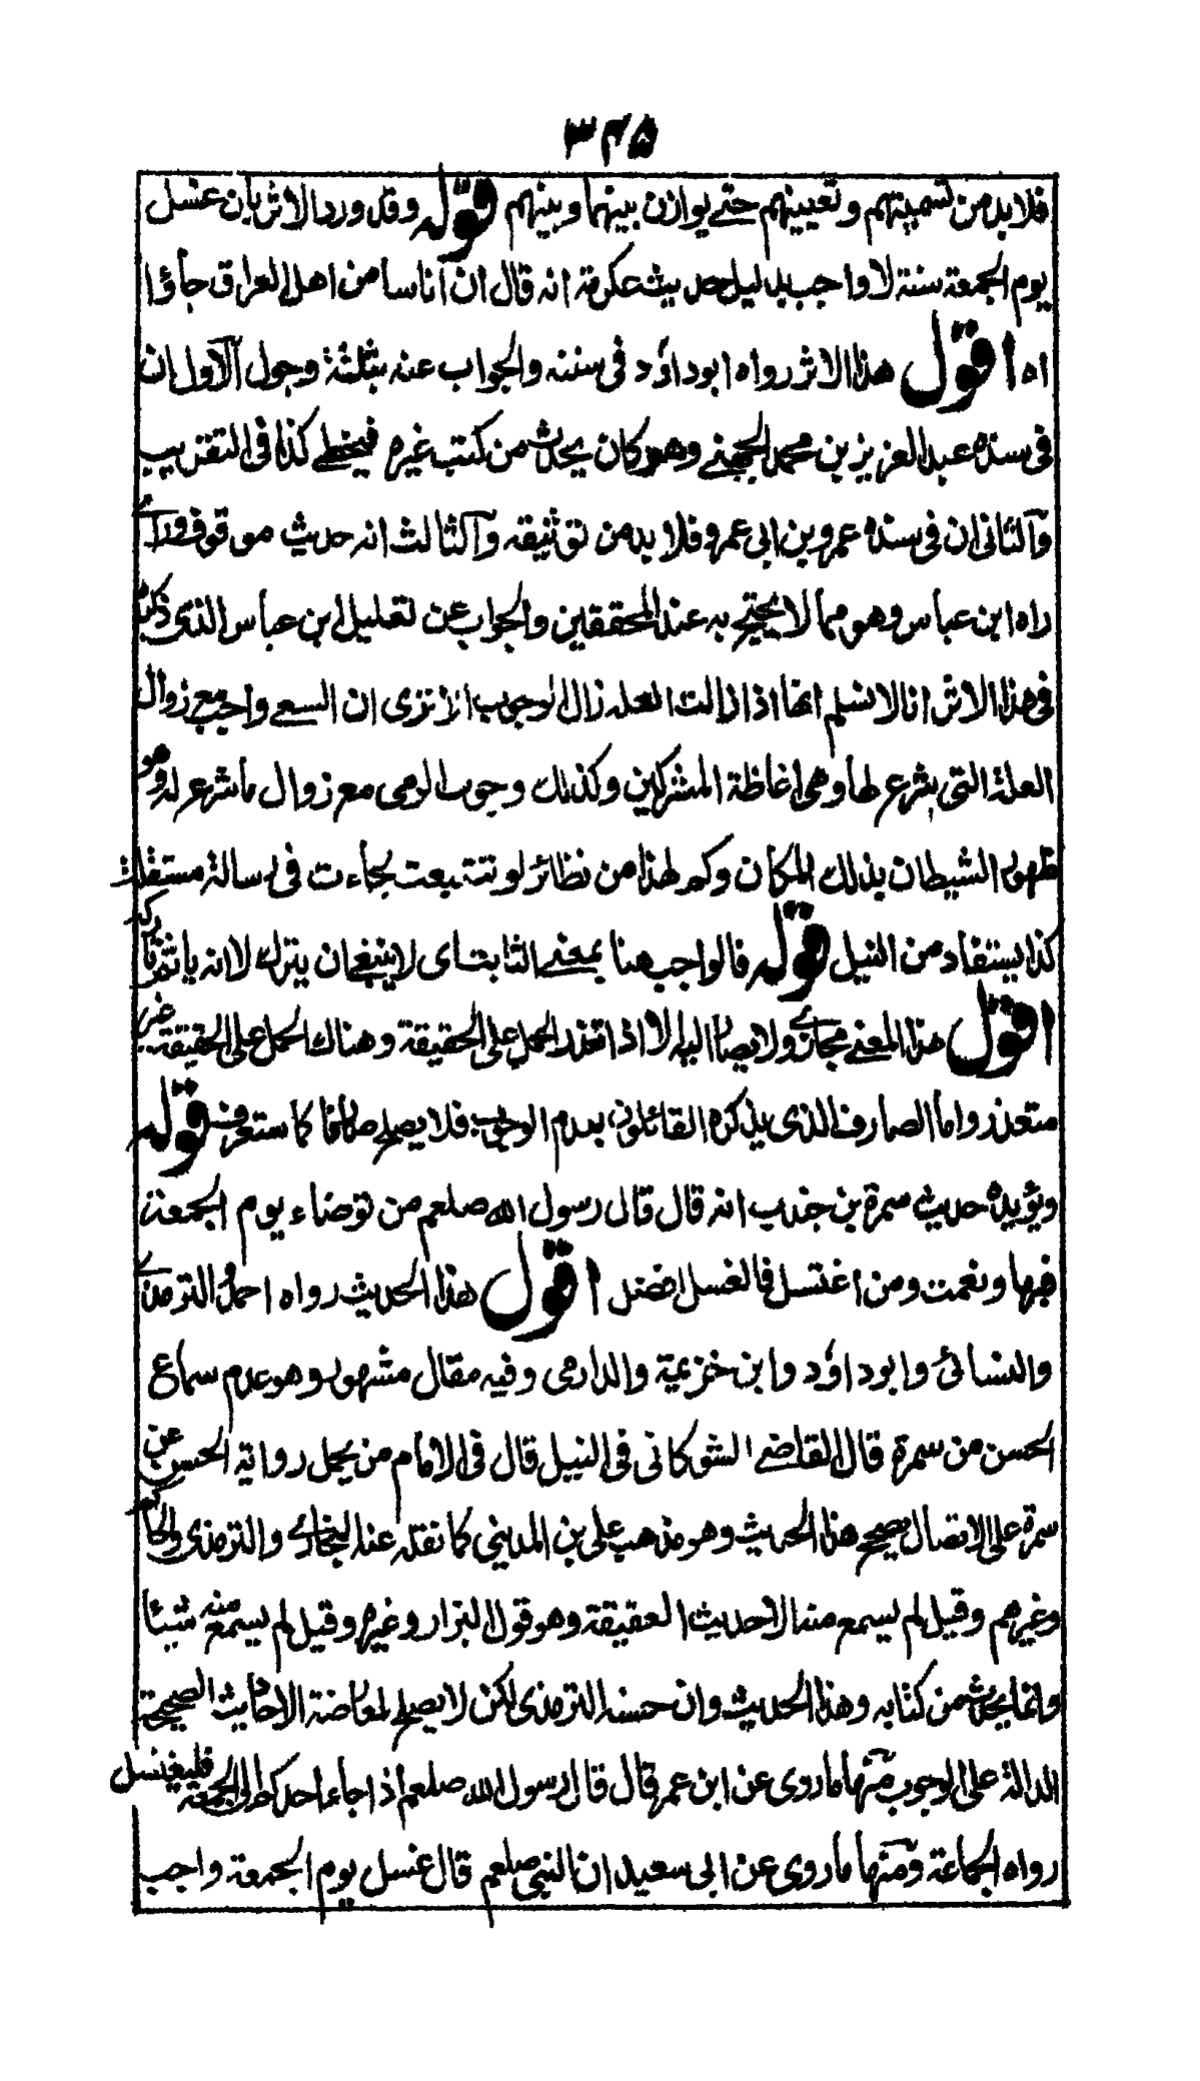 ۳۴۵
فلا بد من تسميتهم وتعيينهم حتے يوازن بينهما وبينهم قوله وقد ورد الاثر بان غسل
يوم الجمعة سنة لا واجب بدليل حديث عكرمة انه قال ان اناسا من اهل العراق جاؤا
اه اقول هذا الاثر رواه ابوداؤد فى سننه والجواب عنه بثلثة وجوه الاول ان
فى سنده عبد العزيز بن محمد الجهنے وهو كان يحدث من كتب غيره فيخطے كذا فى التقريب
والثانى ان فى سنده عمرو بن ابى عمرو فلا بد من توثيقه والثالث انه حديث موقوف ورائے
راه ابن عباس وهو مما لا يحتج به عند المحققين والجواب عن تعليل ابن عباس الذى ذكره
فى هذا الاثر انا لا نسلم انها اذا زالت العلة زال الوجوب الا ترى ان السعے واجب مع زوال
العلة التى شرع لها وهى اغاظة المشركين وكذلك وجوب الرمى مع زوال ما شرع له وهو
ظهور الشيطان بذلك المكان وكم لهذا من نظائر لو تتبعت لجاءت فى رسالة مستقلة
كذا يستفاد من النيل قوله فالواجب هنا بمعنے الثابت اى لا ينبغے ان يترك لا انه ياثم تاركه
اقول هذا المعنے مجازے ولا يصار اليه الا اذا تعذر الحمل على الحقيقة وهناك الحمل على الحقيقة غير
متعذر واما الصارف الذى يذكره القائلون بعدم الوجوب فلا يصلح صارفا كما ستعرف قوله
ويؤيده حديث سمرة بن جندب انه قال قال رسول الله صلعم من توضاء يوم الجمعة
فبها ونعمت ومن اغتسل فالغسل افضل اقول هذا الحديث رواه احمد والترمذے
والنسائى وابوداؤد وابن خزيمة والدارمى وفيه مقال مشهور وهو عدم سماع
الحسن من سمرة قال القاضے الشوكانى فى النيل قال فى الامام من يحمل رواية الحسن عن
سمرة على الاتصال يصحح هذا الحديث وهو مذهب على بن المدينى كما نقله عنه البخارے والترمذى والحاكم
وغيرهم وقيل لم يسمع منه الا حديث العقيقة وهو قول البزار وغيره وقيل لم يسمع منه شيئا
وانما يحدث من كتابه وهذا الحديث وان حسنه الترمذى لكن لا يصلح لمعارضة الاحاديث الصحيحة
الدالة على الوجوب منها ما روى عن ابن عمر قال قال رسول الله صلعم اذا جاء احدكم الى الجمعة فليغتسل
رواه الجماعة ومنها ما روى عن ابى سعيد ان النبى صلعم قال غسل يوم الجمعة واجب